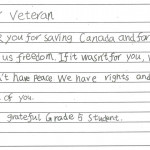 Veteran
you for saving Canada and for
us freedom. If it wasn't for you, w
n't have peace We have rights and
of you.
grateful Grade 5 student.